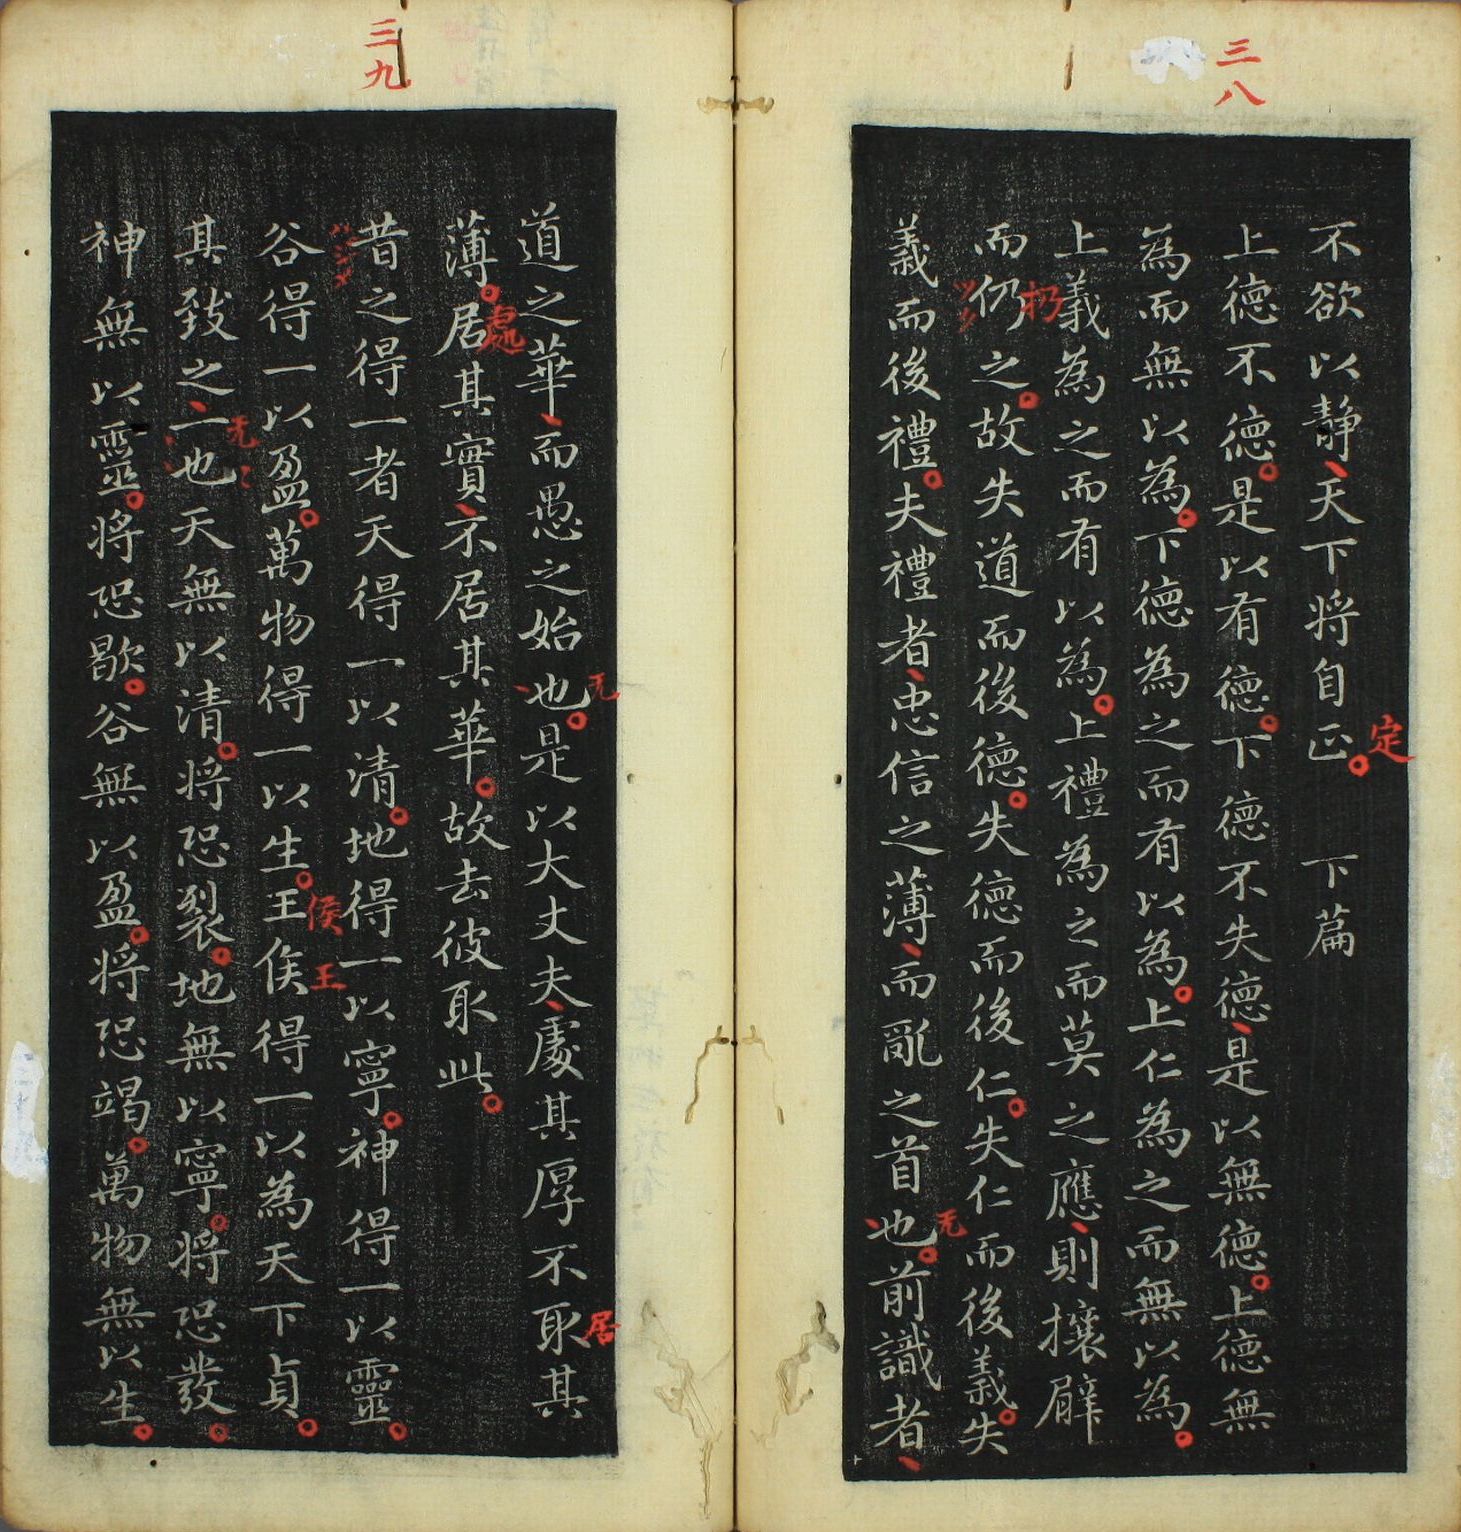 三八
不欲以静天下将自正　下篇
定
上德不德是以有德下德不失德是以無德上德無
為而無以為下德為之而有以為上仁為之而無以為
上義為之而有以為上禮為之而莫之應則攘臂
扔
而仍之故失道而後德失德而後仁失仁而後義失
義而後禮夫禮者忠信之薄而亂之首也前識者
无
三九
道之華而愚之始也是以大丈夫處其厚不取其
无
居
薄居其實不居其華故去彼取此
處
昔之得一者天得一以清地得一以寧神得一以靈
谷得一以盈萬物得一以生王侯得一以為天下貞
侯
王
其致之一也天無以清将恐裂地無以寧将恐發
无
神無以靈将恐歇谷無以盈将恐竭萬物無以生